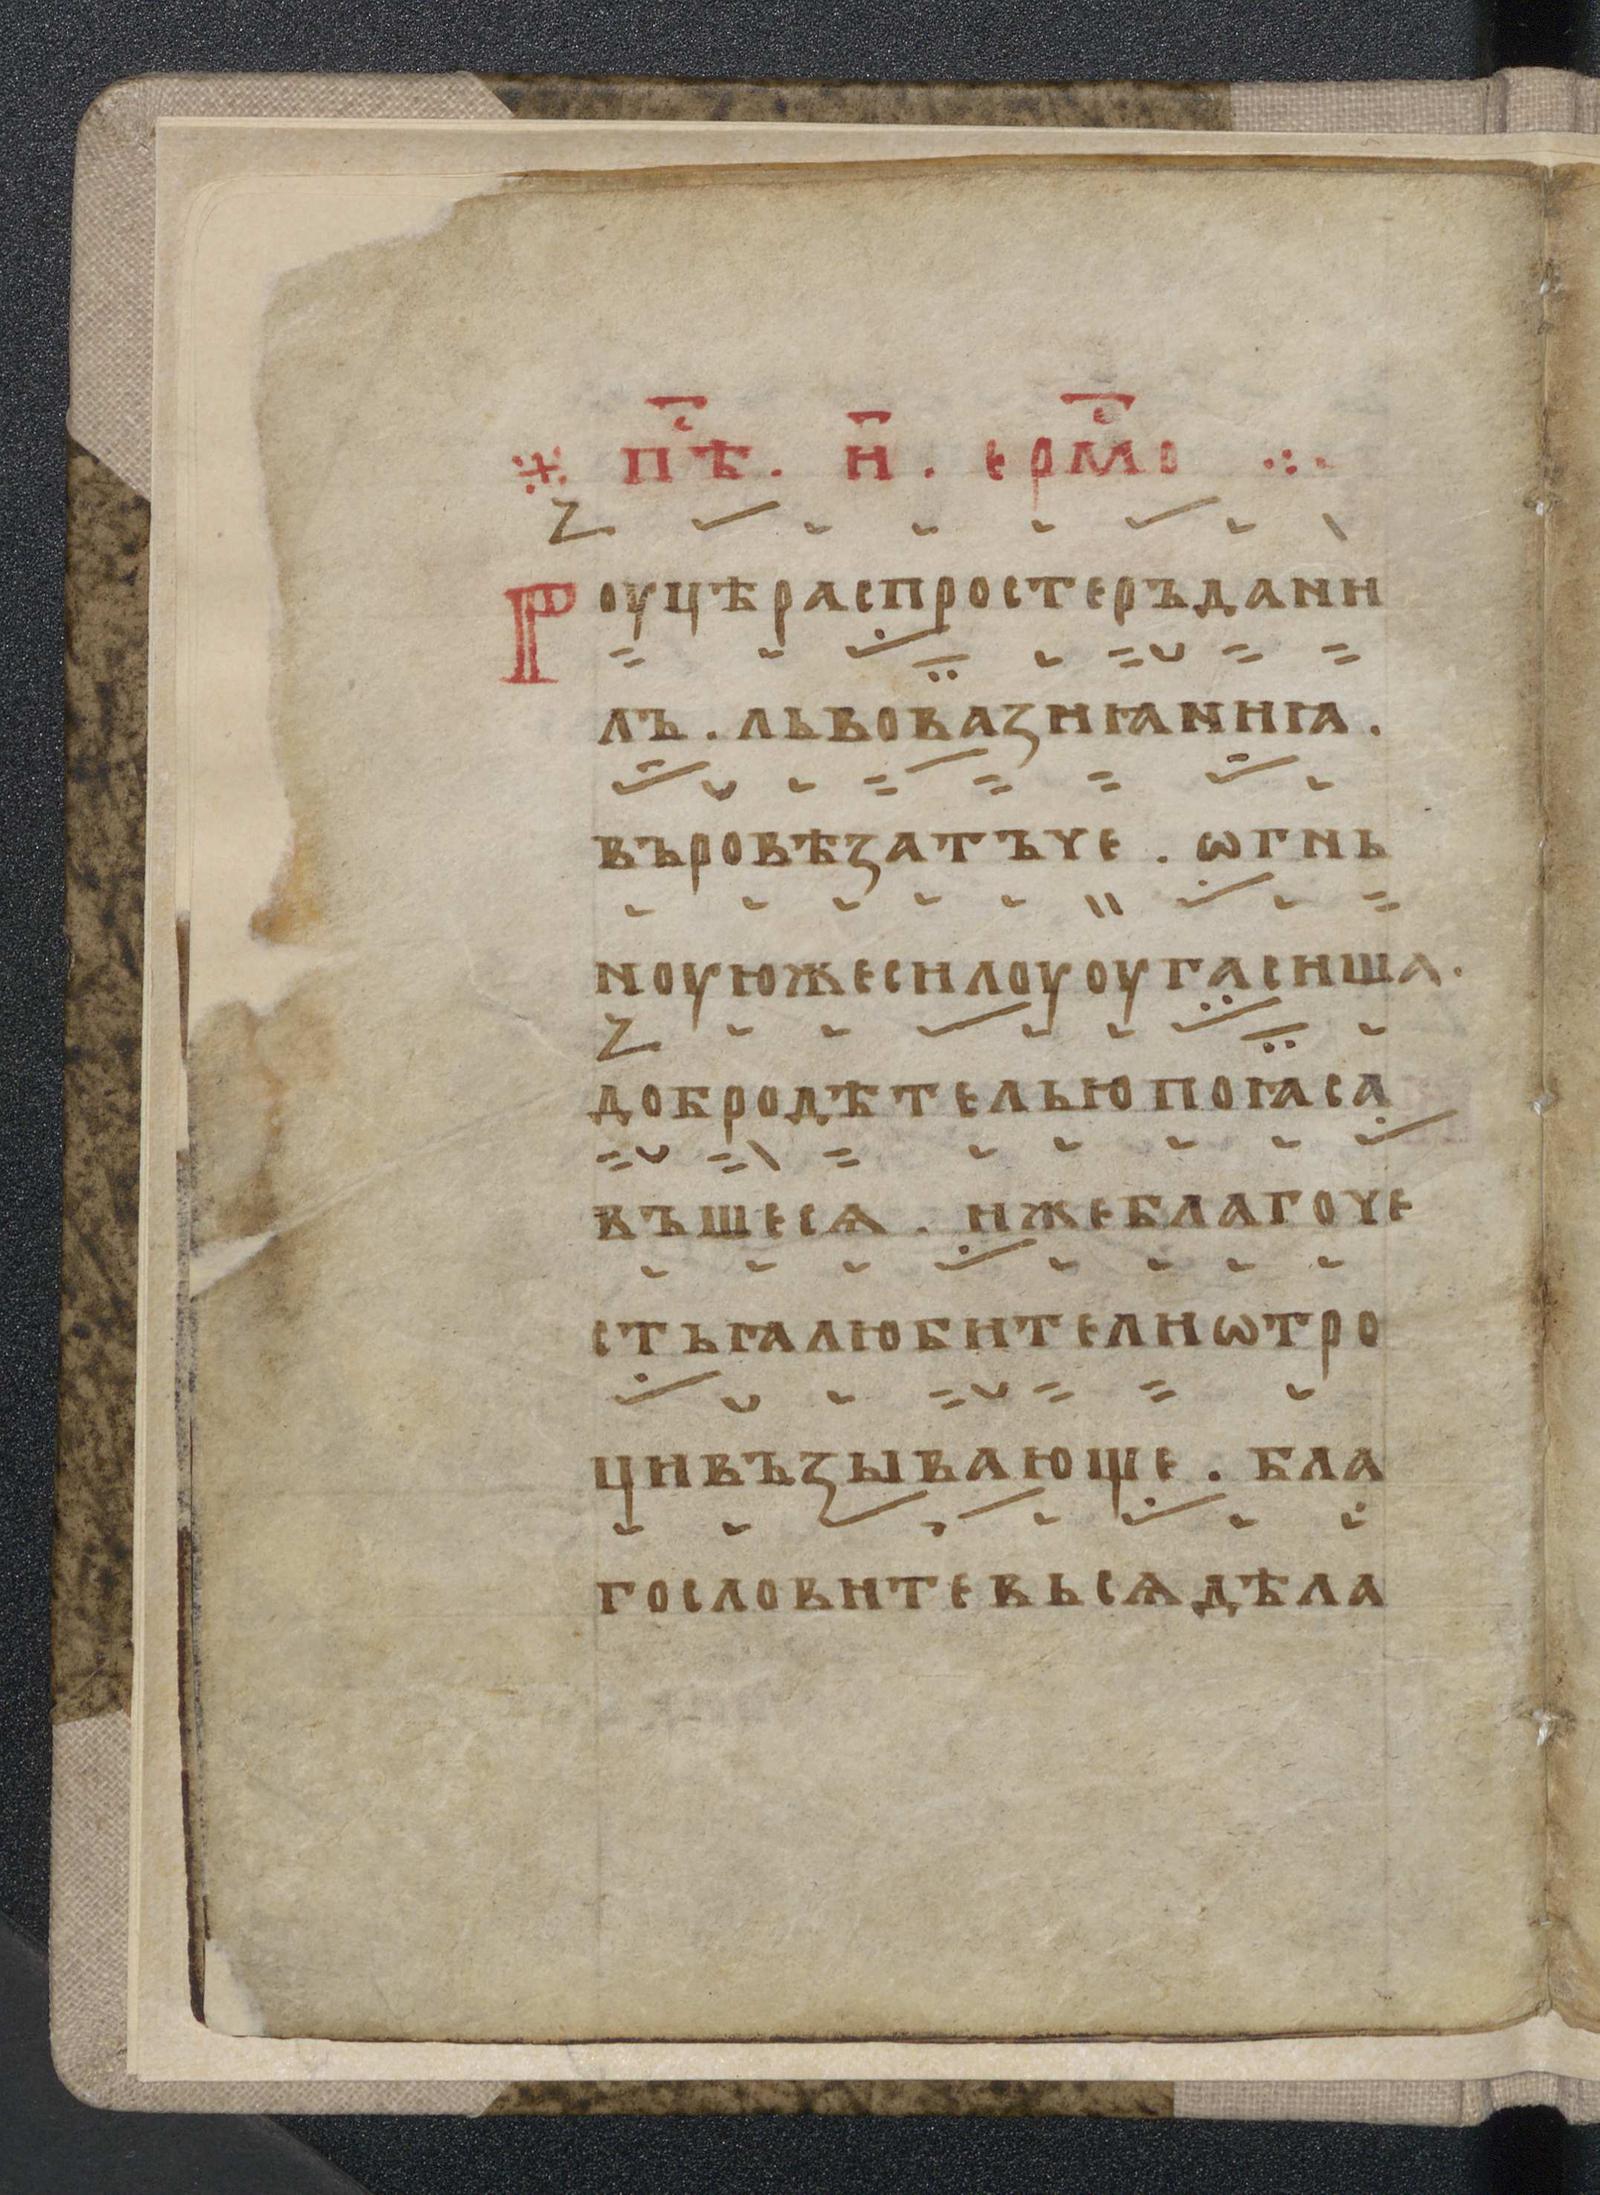 ※ пѣ҃с . и҃ . ерм҃со ·:·
Роуцѣраспростеръдани
лъ . львовазиꙗниꙗ .
въровѣзатъче . ѡгнь
ноуюжесилоуоугасиша .
добродѣтельюпоꙗса
въшесѧ . ижеблагоче
стьꙗлюбителиѡтро
цивъзывающе . бла
гословитевьсѧдѣла